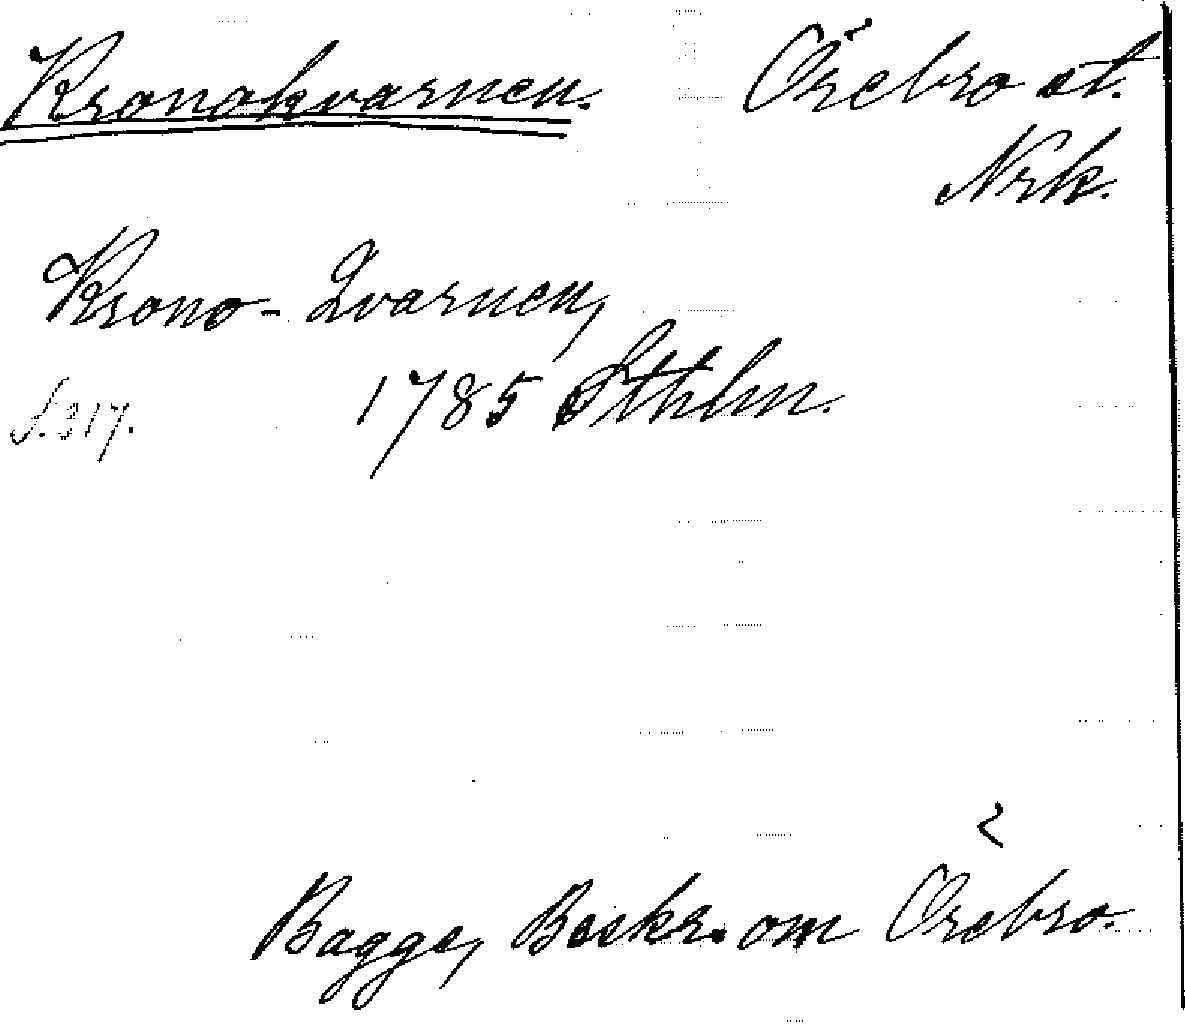 Kronokvarnen. Örebro st.
Nrk.
Krono-Qvarnen,
s. 317. 1785 Sthlm.
Bagge, Beskr. om Örebro.